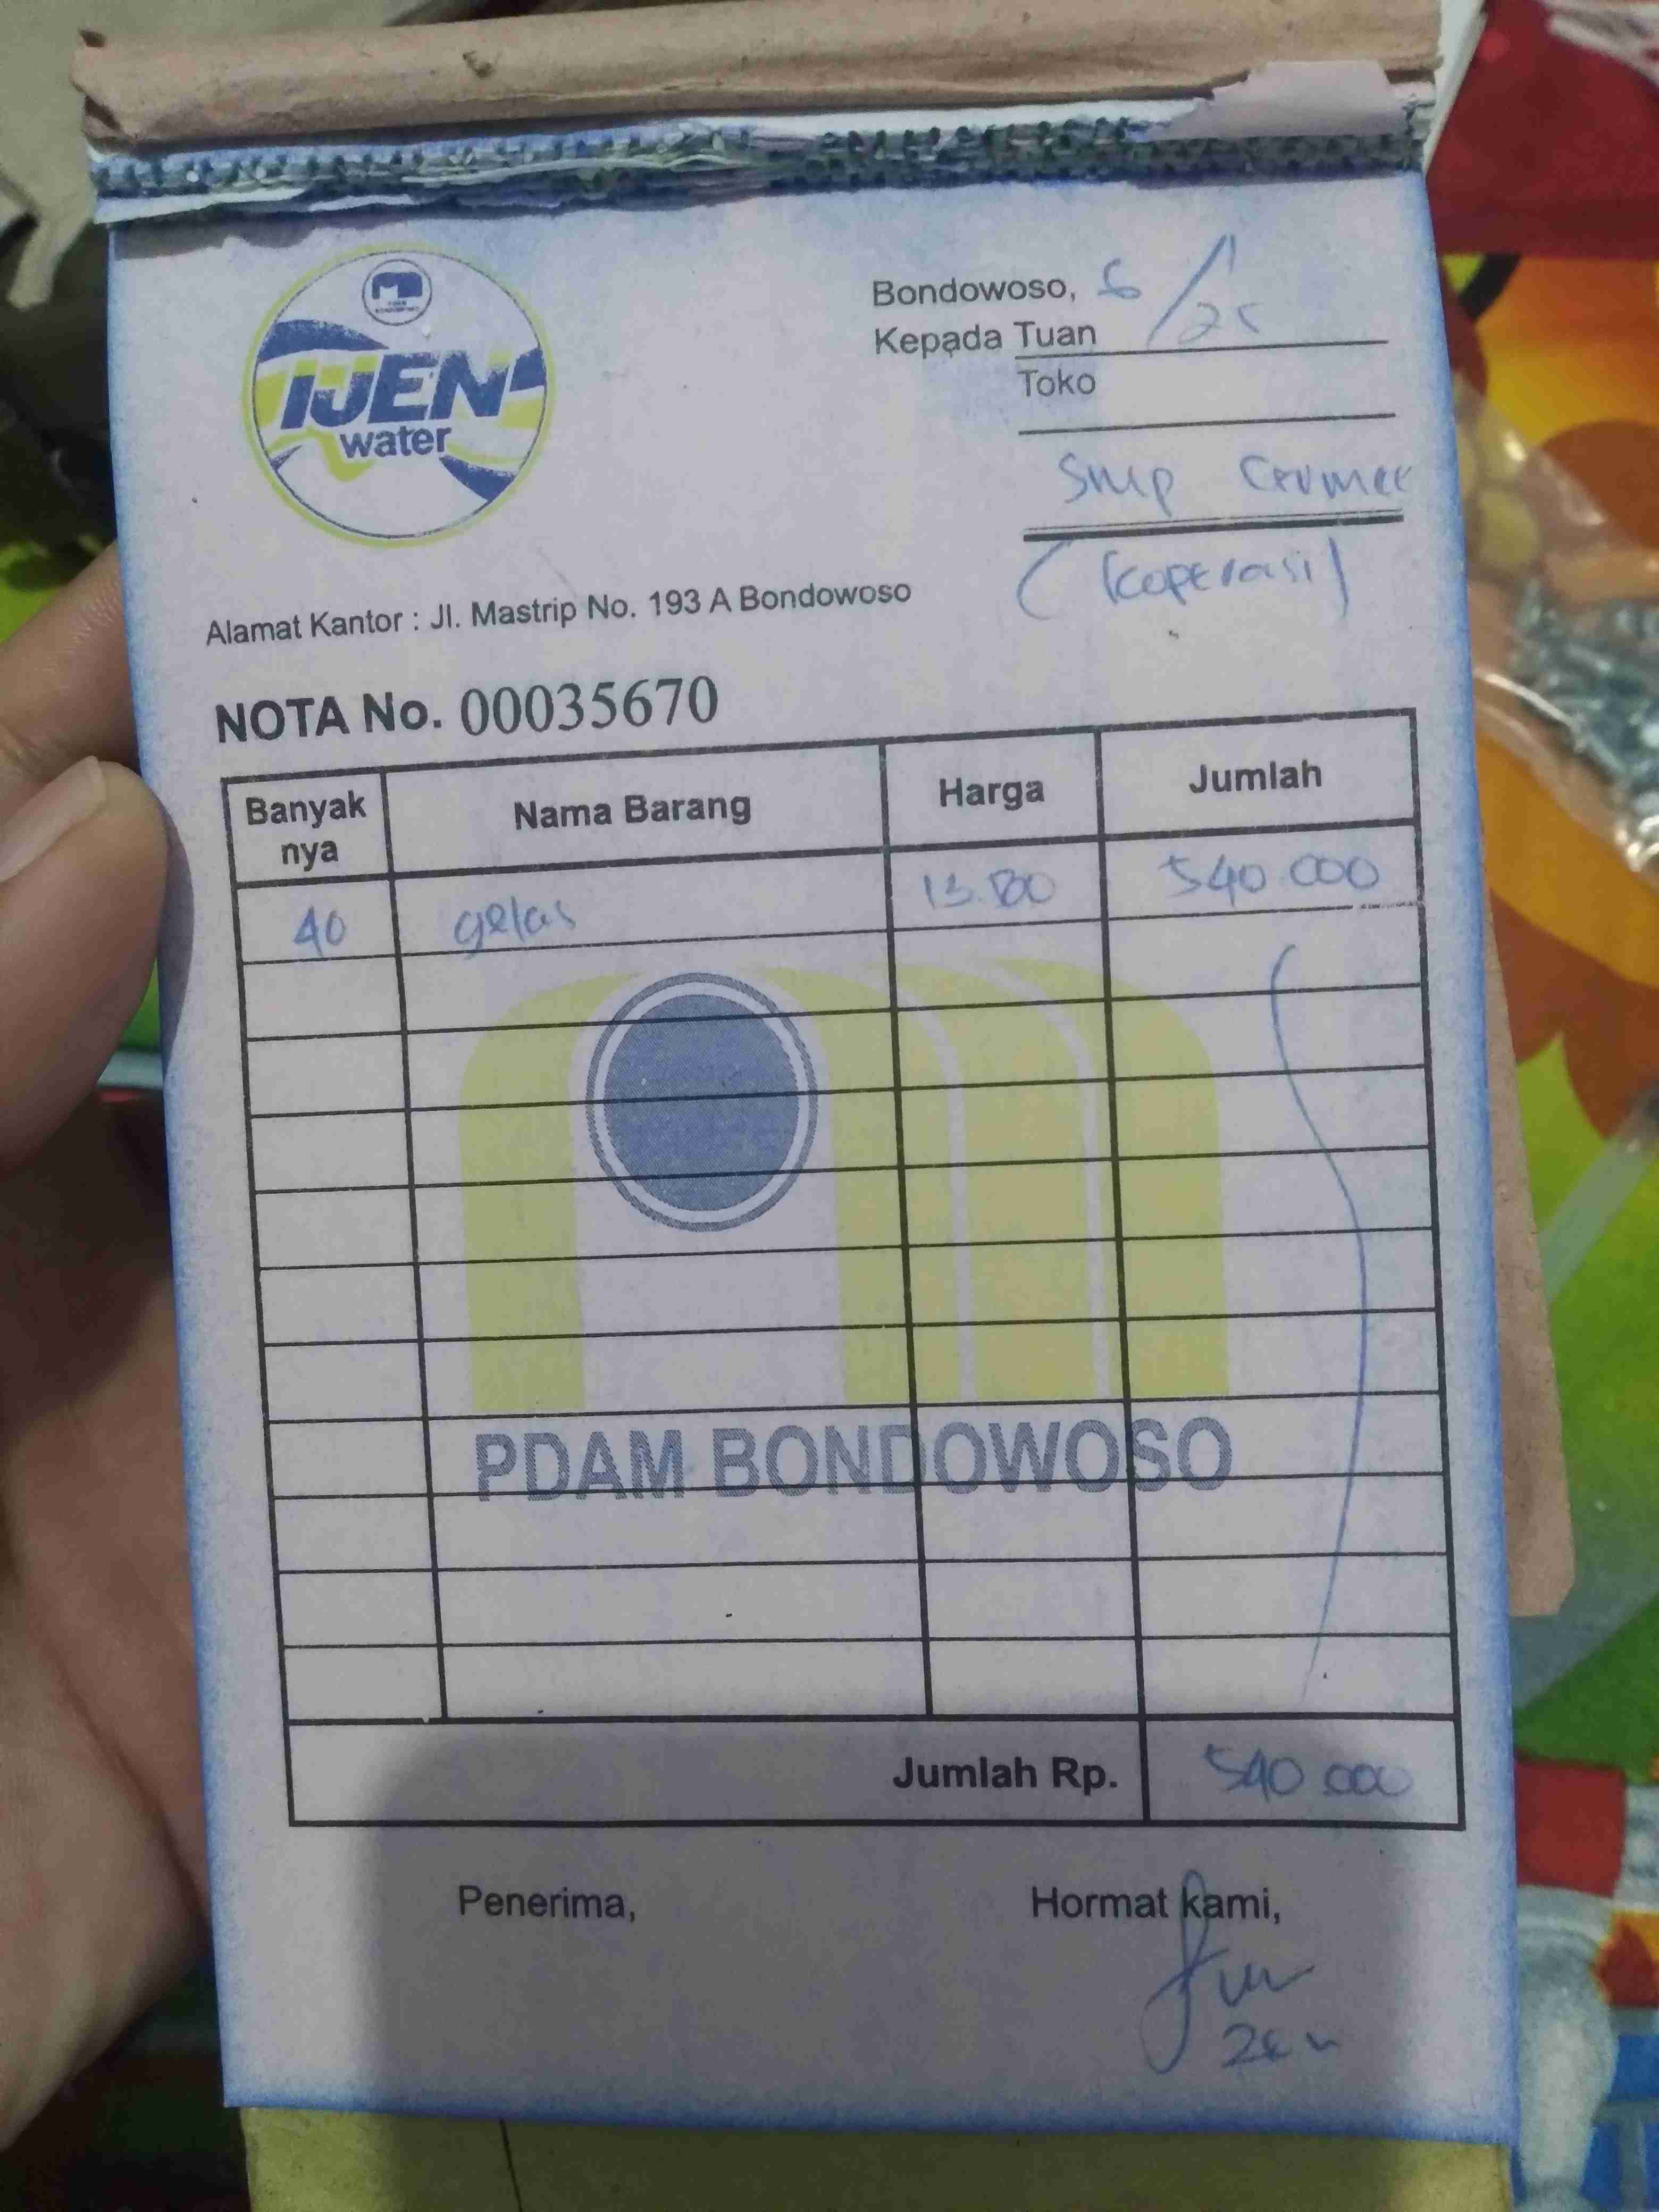 IJEN
water
Bondowoso, 6/1/25
Kepada Tuan
Toko
Smp Cermee
(Koperasi)
Alamat Kantor : Jl. Mastrip No. 193 A Bondowoso
NOTA No. 00035670
Banyak nya Nama Barang Harga Jumlah
40 gelas 13.500 540.000
PDAM BONDOWOSO
Jumlah Rp. 540.000
Penerima, Hormat kami,